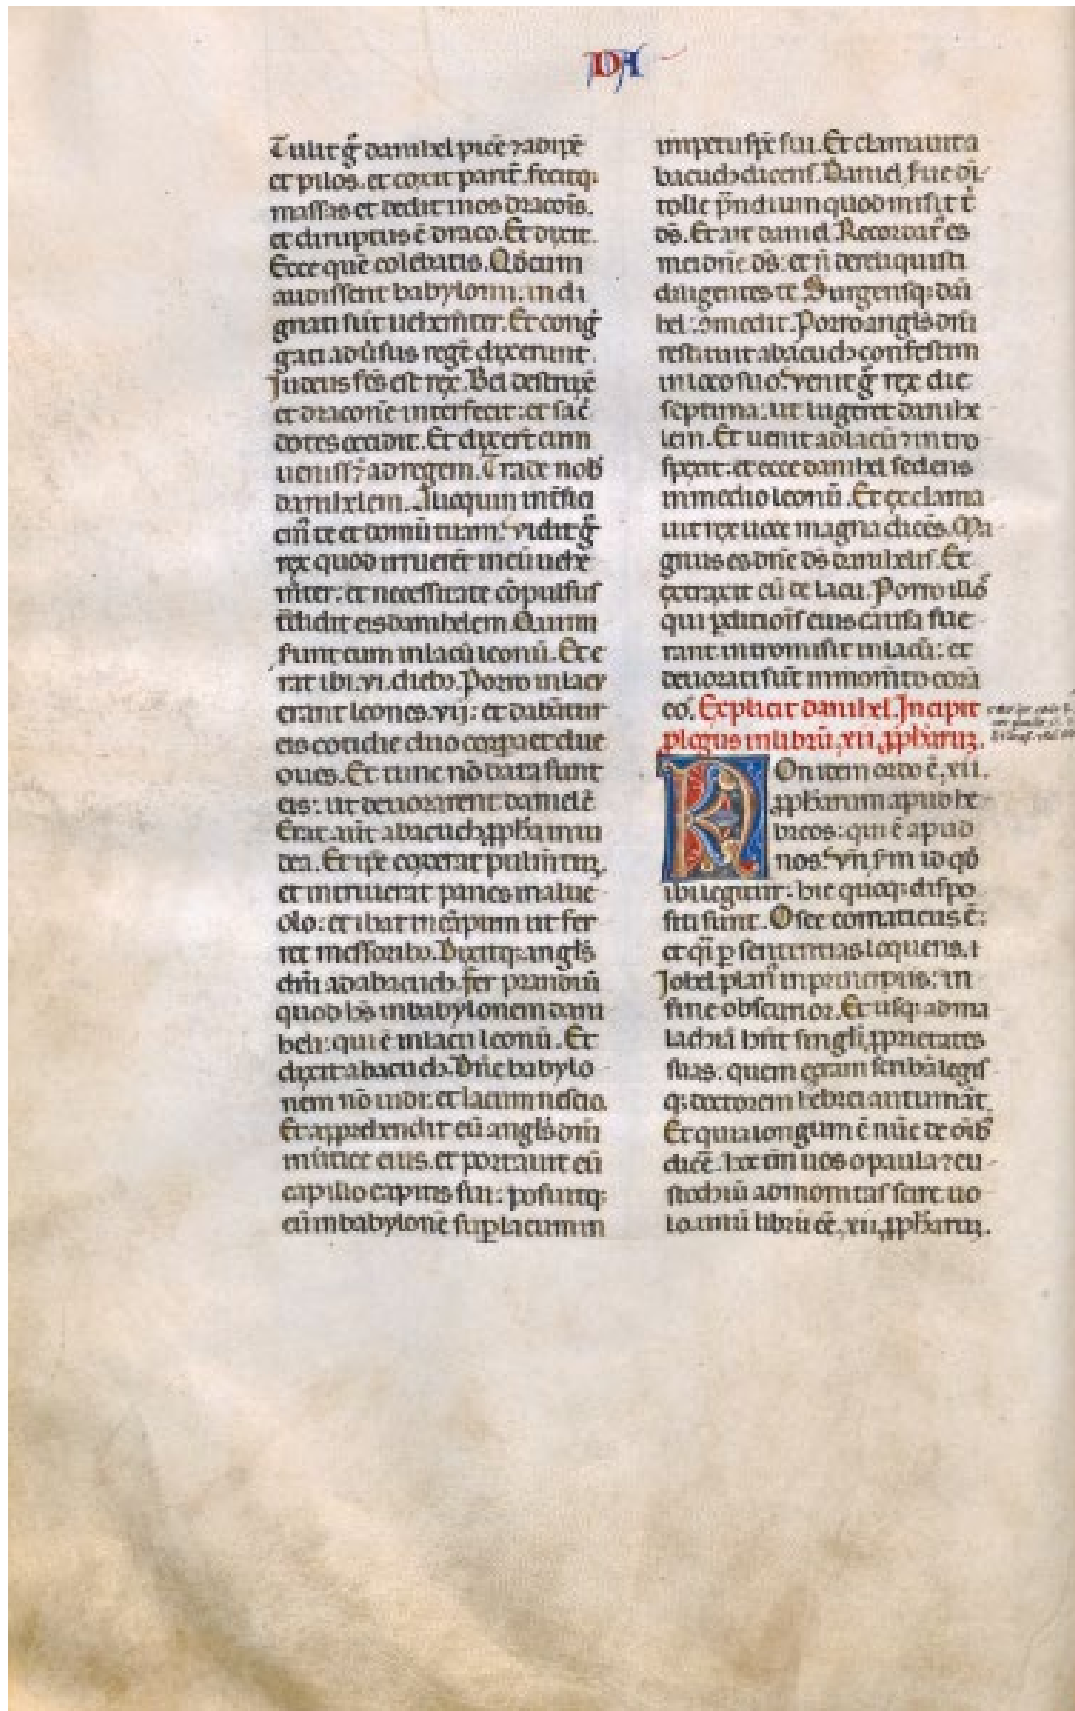 DA
Tulit g̃ danihel picē ⁊ adipē
et pilos. et coxit parit̃. fecitq;
massas et dedit in os dracōis.
et diruptus ē draco. Et dixit.
Ecce quē colebatis. Q̃d cum
audissent babylonii: indi
gnati sūt uehem̃ter. Et cong̃
gati adūsus regē dixerunt.
Iudeus fc̃s est rex. Bel destruxē
et draconē interfecit: et sac̃
dotes occidit. Et dixer̃t cum
ueniss⁊ ad regem. Trade nob̃
danihelem. Alioquin int̃fici
em̃ te et domū tuam. Vidit g̃
rex quod irruer̃nt in eū uehe
m̃ter: et necessitate cōpulsus
t̃didit eis danihelem. Qui mi
serunt eum in lacū leonū. Et e
rat ibi .vi. dieb;. Porro in lacu
erant leones .vii: et dabātur
eis cotidie duo corpa et due
oues. Et tunc nō data sunt
eis: ut deuorarent danielē
Erat aūt abacuch ꝓpħa in iu
dea. Et ipē coxerat pulm̃tuꝫ.
et intriuerat panes in alue
olo: et ibat in cāpum ut fer
ret messorib;. Dixitq; angl̃s
dñi ad abacuch. fer prandiū
quod hẽs in babylonem dani
heli: qui ē in lacu leonū. Et
dixit abacuch. Dñe babylo
nem nō uidi: et lacum nescio.
Et apprehendit eū angl̃s dñi
in ũtice eius. et portauit eū
capillo capitis sui: posuitq;
eū in babylonē suꝑ lacum in
impetu sp̃c sui. Et clamauit a
bacuch dicens. Daniel, scrue di
tolle p̃ndium quod misit t̃
ds̃. Et ait daniel. Recordat̃ es
mei dñe ds̃: et ñ dereliquisti
diligentes te. Surgensq; dañ
hel: ɔmedit. Porro angl̃s dñi
restituit abacuch confestim
in loco suo. Venit g̃ rex die
septima: ut lugeret danihe
lem. Et uenit ad lacū ⁊ intro
spexit: et ecce danihel sedens
in medio leonū. Et exclama
uit rex uoce magna dicēs. Ma
gnus es dñe ds̃ danihelis. Et
extraxit eū de lacu. Porro illos̃
qui ꝑditiois̃ eius causa fue
rant intromisit in lacū: et
deuorati sūt in mom̃to corā
eo. Explicit danihel. Incipit
plogus in librū .xii. ꝓpħaruꝫ.
NOn idem ordo ē .xii.
ꝓpħarum apud he
breos: qui ē apud
nos. Vñ sm̃ id qd̃
ibi legitur: hic quoq; dispo
siti sunt. Osee comaticus ē:
et qi̇ p sententias loquens.
Iohel plan̾ in principiis: in
fine obscurior. Et usq; ad ma
lachiā hñt singl̃i ꝓprietates
suas. quem eẓram scribā legis
q; doctorem hebrei autumāt.
Et quia longum ē nūc de oĩb;
dicē. hoc tm̃ uos o paula ⁊ eu
stochiū admonitas scire uo
lo. unū librū eē .xii. ꝓpħaruꝫ.